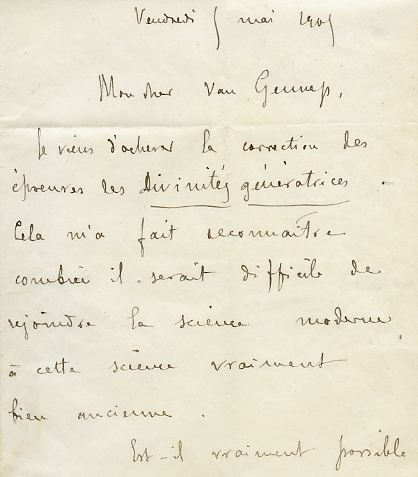 Vendredi 5 mai 1905
Mon cher Van Gennep,
Je viens d'achever la correction des
épreuves des divinités génératrices.
Cela m'a fait reconnaître
combien il serait difficile de
rejoindre la science moderne
à cette science vraiment
bien ancienne.
Est-il vraiment possible